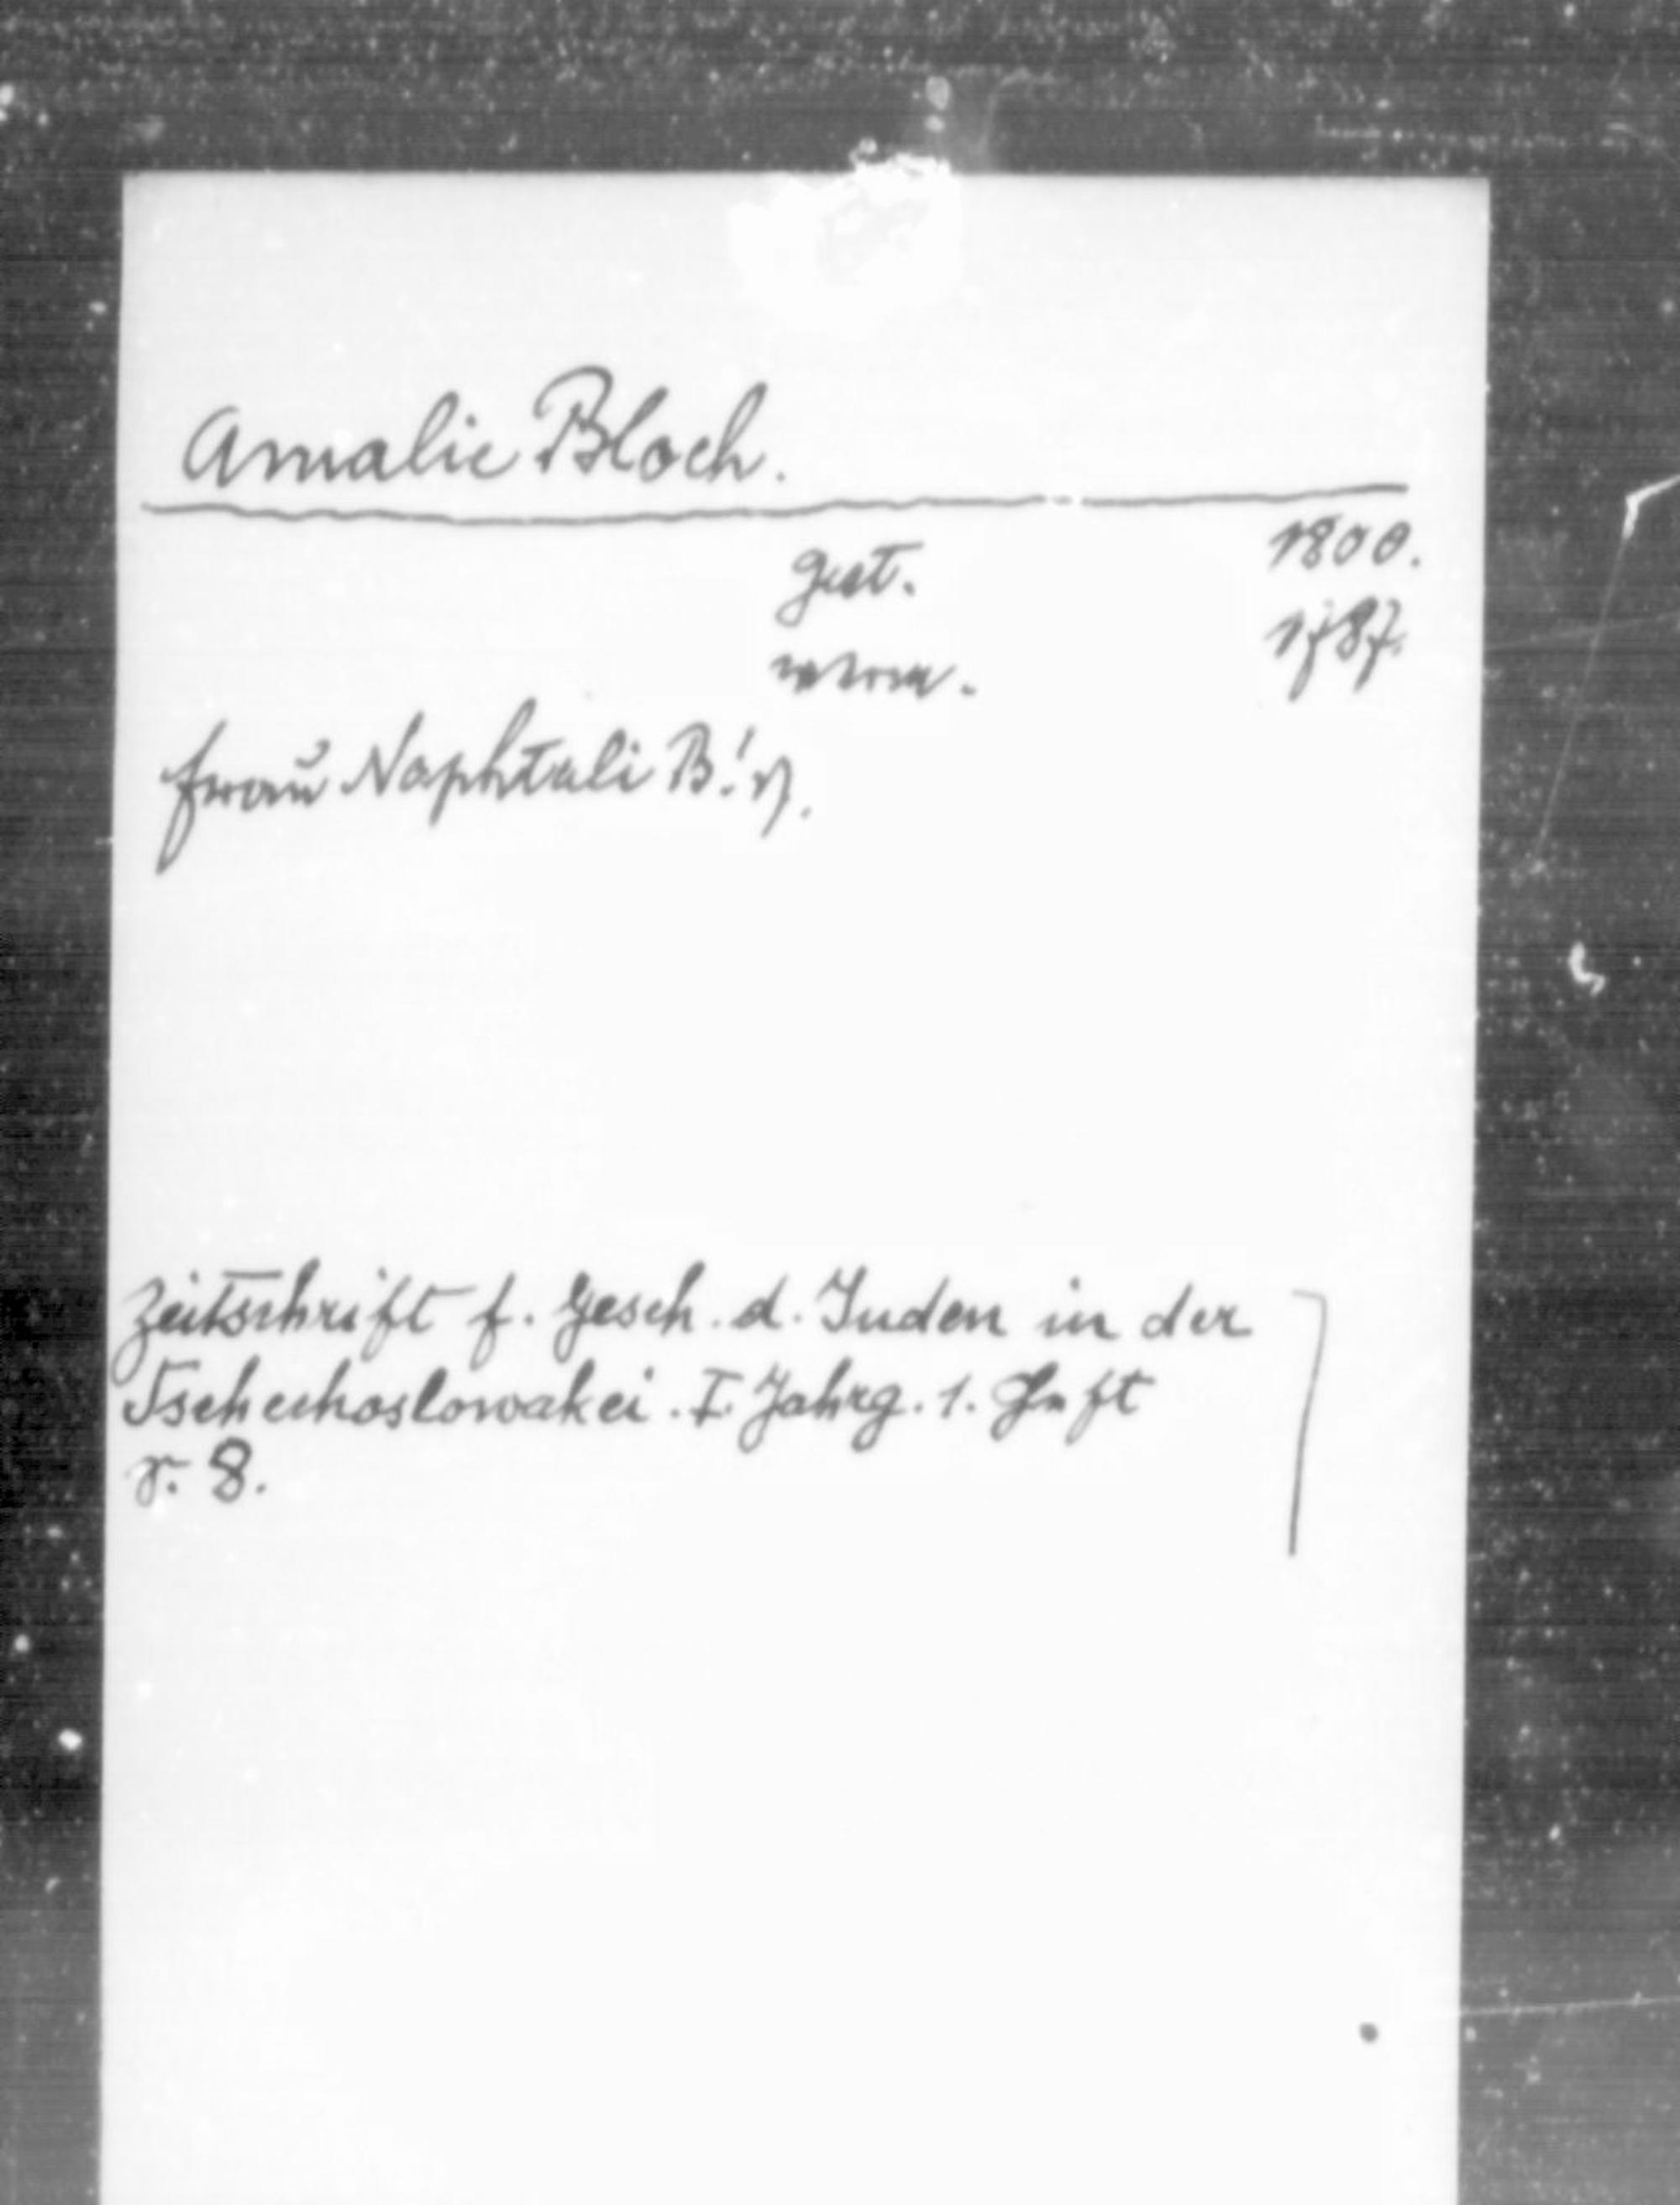 Amalie Bloch.
gest. 1800.
verm. 1787.
Frau Naphtali B.!s.
Zeitschrift f. Gesch. d. Juden in der
Tschechoslowakei. I. Jahrg. 1. Heft
S. 8.